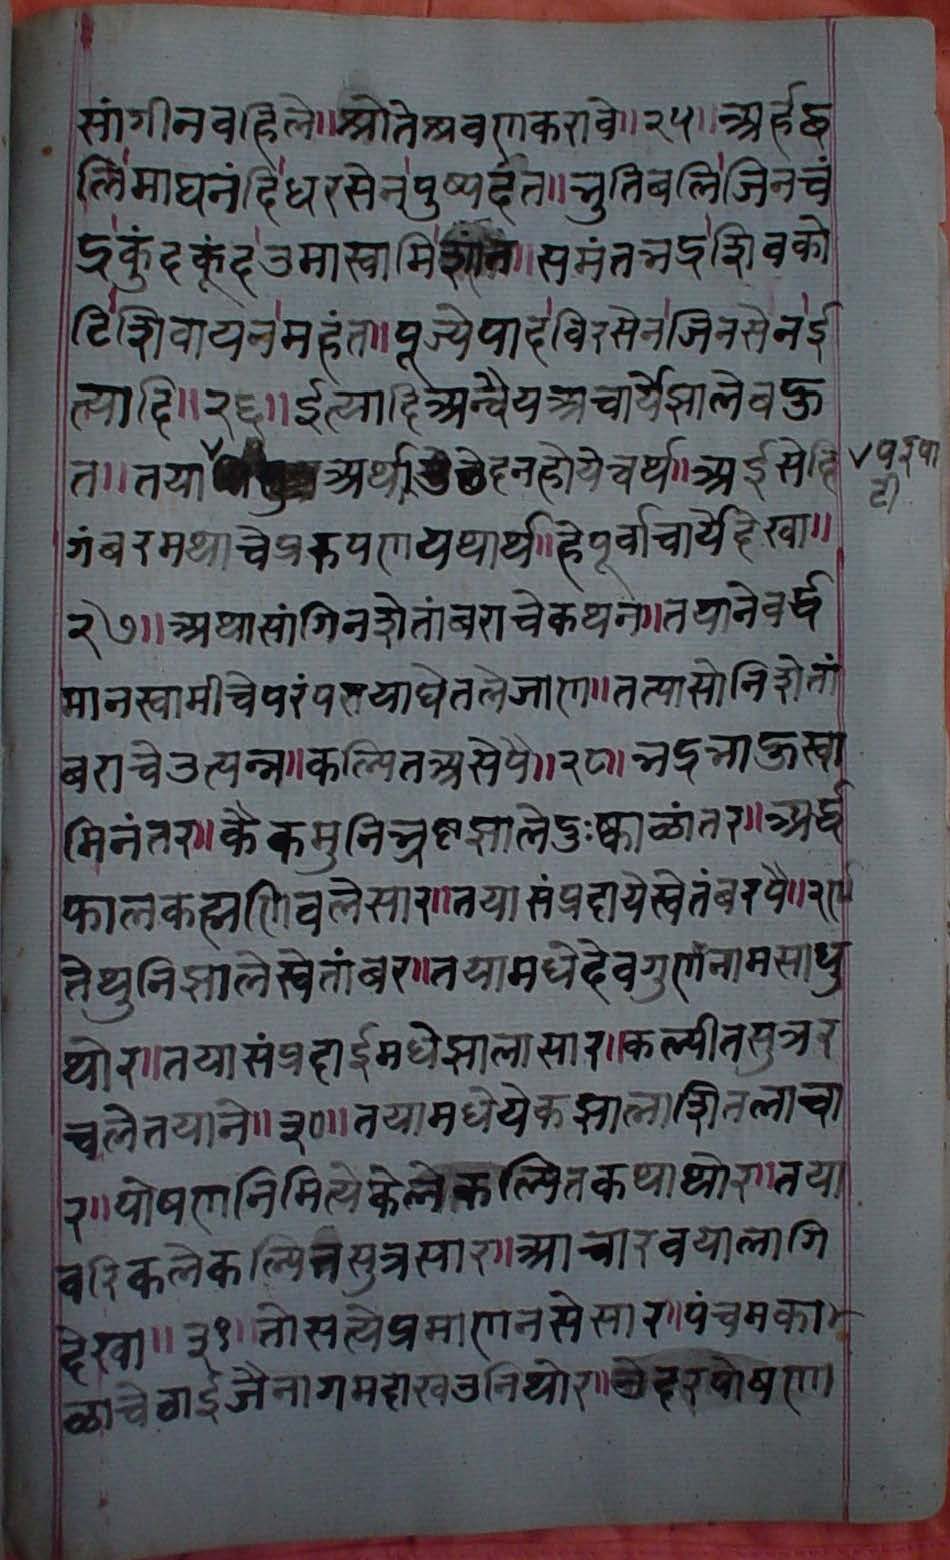 सांगीनवहिले॥श्रोतेश्रवणकरावे॥२५॥अर्हद्ब
लिमाघनंदिधरसेनपुष्पदंत॥भुतिबलिजिनचं
द्रकुंदकूंदउमास्वामि॥समंतभद्रशिवको
टिशिवायनमहंत॥पूज्येपादविरसेनजिनसेनई
त्यादि॥२६॥ईत्यादिअन्वैयअचार्यझालेबहु
त॥तया अर्थाउछेदनहोयेचर्थ॥अईसेदि
गंबरमथाचेप्ररुपणयथार्थ॥हेपूर्वाचार्यदेखा॥
२७॥अथासांगिनश्वेतांबराचेकथन॥तयानेवर्ध
मानस्वामीचेपरंपरायाघेतलेजाण॥तत्यासोनिश्वेतां
बराचेउत्पन्न॥कल्पितअसेपै॥२८॥भद्रभाहुस्वा
मिनंतर॥कैकमुनिभ्रष्टझालेदुःष्काळांतर॥अर्ध
फालकह्मणिवलेसार॥तयासंप्रदायेस्वेतंबरपै॥२९
तेथुनिझालेस्वेतांबर॥तयामधेदेवगुर्णनामसाधु
थोर॥तयासंप्रदाईमधेझालासार॥कल्पीतसुत्रर
चलेतयाने॥३०॥तयामधेयेकझालाशितलाचा
र॥पोषणनिमित्येकेलेकल्पितकथाथोर॥तया
वरिकलेकल्पितसुत्रसार॥आचारवयालागि
देखा॥३१॥तोसत्येप्रमाणनसेसार॥पंचमका
ळाचेठाईजैनागमदाखउनिथोर॥पोषण